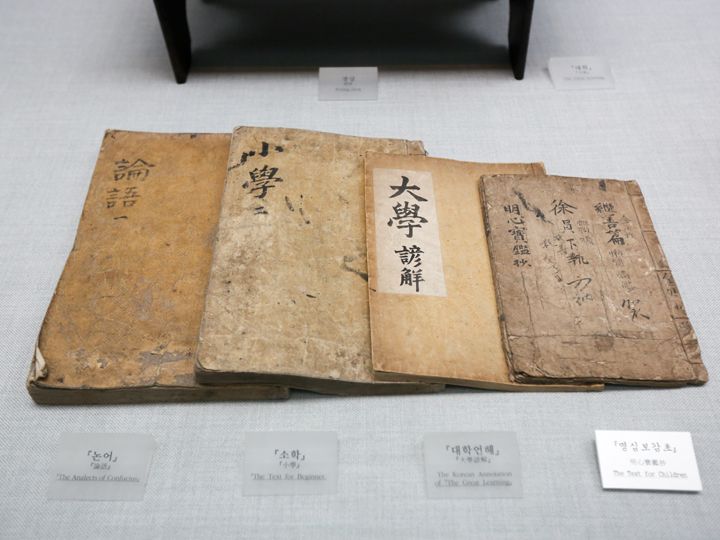 경상
『대학』
論語
一
小學
二
大學
諺解
明心寶鑑抄
繼善篇
『논어』
『論語』
『The Analects of Confucius』
『소학』
『小學』
『The Text for Beginner』
『대학언해』
『大學諺解』
The Korean Annotation
of 『The Great Learning』
『명심보감초』
明心寶鑑抄
The Text for Children